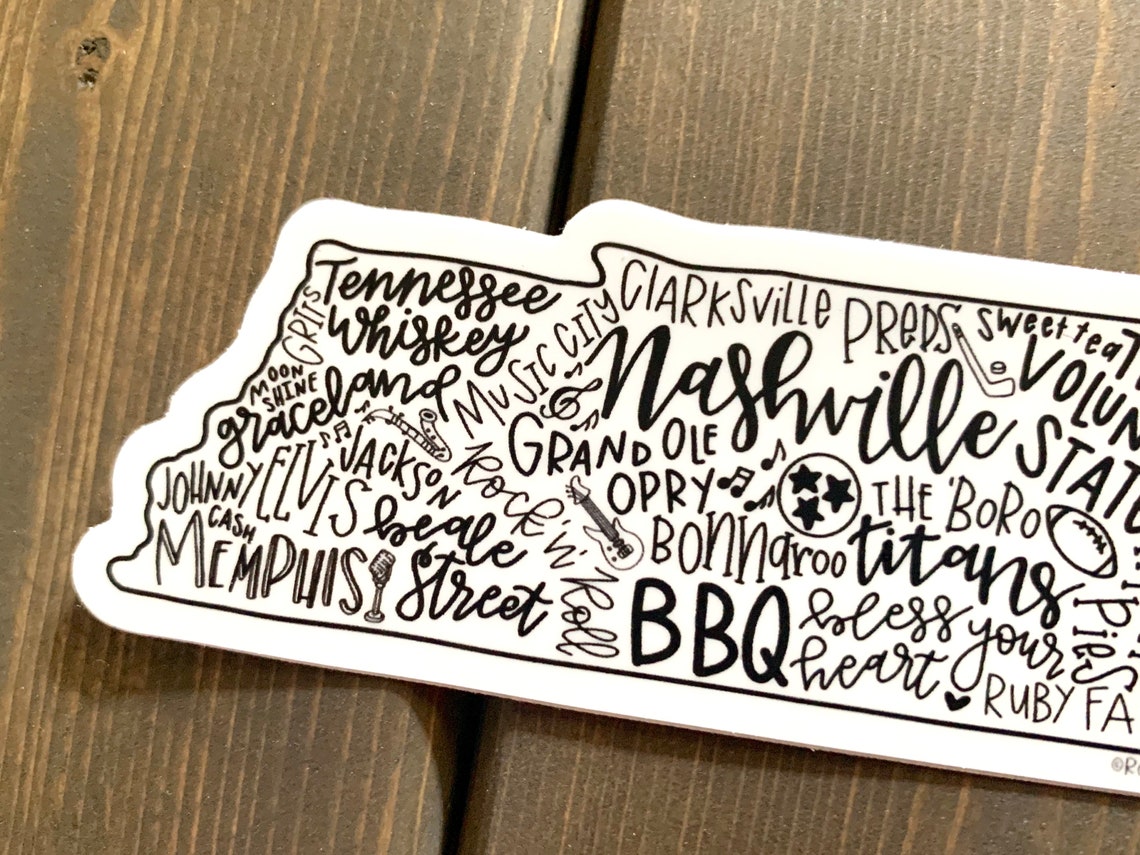 Tennessee
Whiskey
GRITS
MOON
SHINE
graceland
MUSIC CITY
JOHNNY
CASH
ELVIS
JACKSON
MEMPHIS
beale
Street
Rock'n' Roll
CLARKSVILLE
PREDS
sweet tea
Nashville
VOLUN
STATE
GRAND OLE
OPRY
THE 'BORO
BONNAROO
titans
BBQ
bless your
heart
Pies
RUBY FA